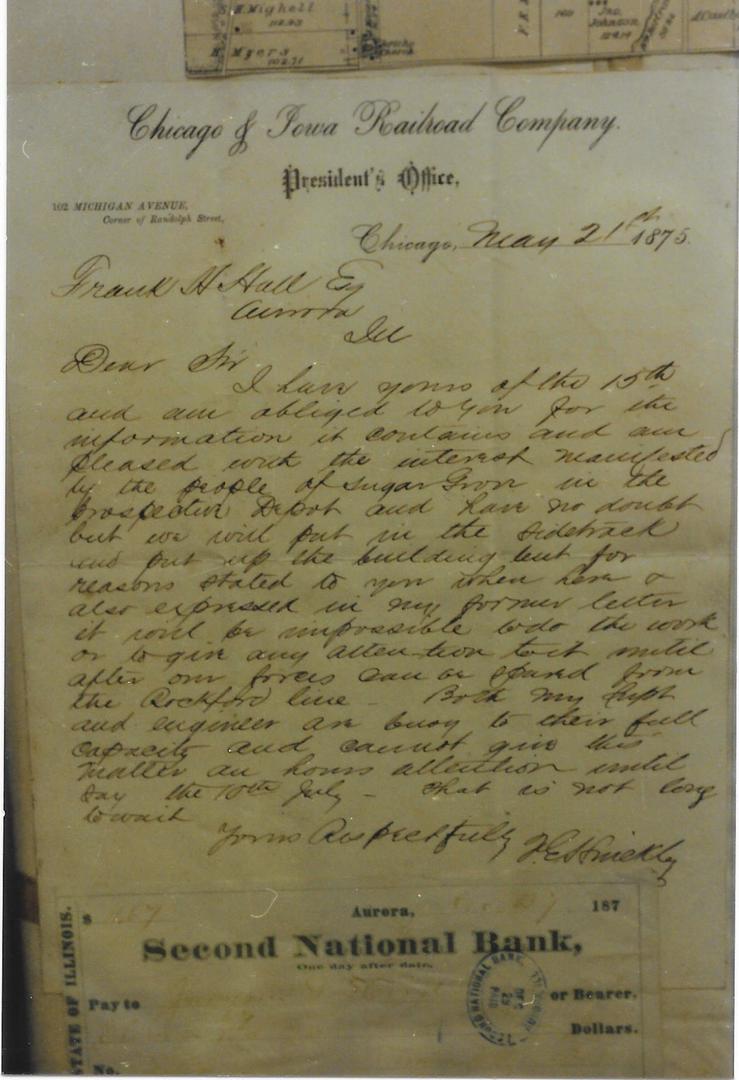 H. Mighell
112.93
H Myers
102.71
Church
160
Jno.
Johnson
Chicago & Iowa Railroad Company.
President's Office,
102 MICHIGAN AVENUE,
Corner of Randolph Street,
Chicago, May 21st 1875.
Frank H Hall Esq
Aurora
Ill
Dear Sir
I have yours of the 15th
and am obliged to you for the
information it contains and am
pleased with the interest manifested
by the people of Sugar Grove in the
prospective Depot and have no doubt
but we will put in the sidetrack
and put up the building but for
reasons stated to you when here &
also expressed in my former letter
it will be impossible to do the work
or to give any attention to it until
after our forces can be spared from
the Rockford line - Both my Supt
and engineer are busy to their full
capacity and cannot give this
matter an hours attention until
say the 10th July - that is not long
to wait
Yours Respectfully
F E Hinckley
STATE OF ILLINOIS.
$
Aurora, 187
Second National Bank,
One day after date,
Pay to or Bearer,
NATIONAL BANK
DEC
23
PAID
Dollars.
No.